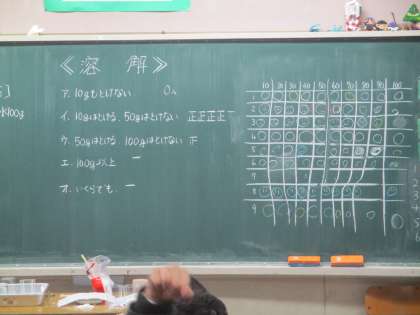 《溶 解》
ア. 10gもとけない 0人
イ. 10gはとける, 50gはとけない 正正正正一
ウ. 50gはとける, 100gはとけない 正
エ. 100g以上 一
オ. いくらでも. 一
100g
10 20 30 40 50 60 70 80 90 100
1
2
3
4
5
6
7
8
9